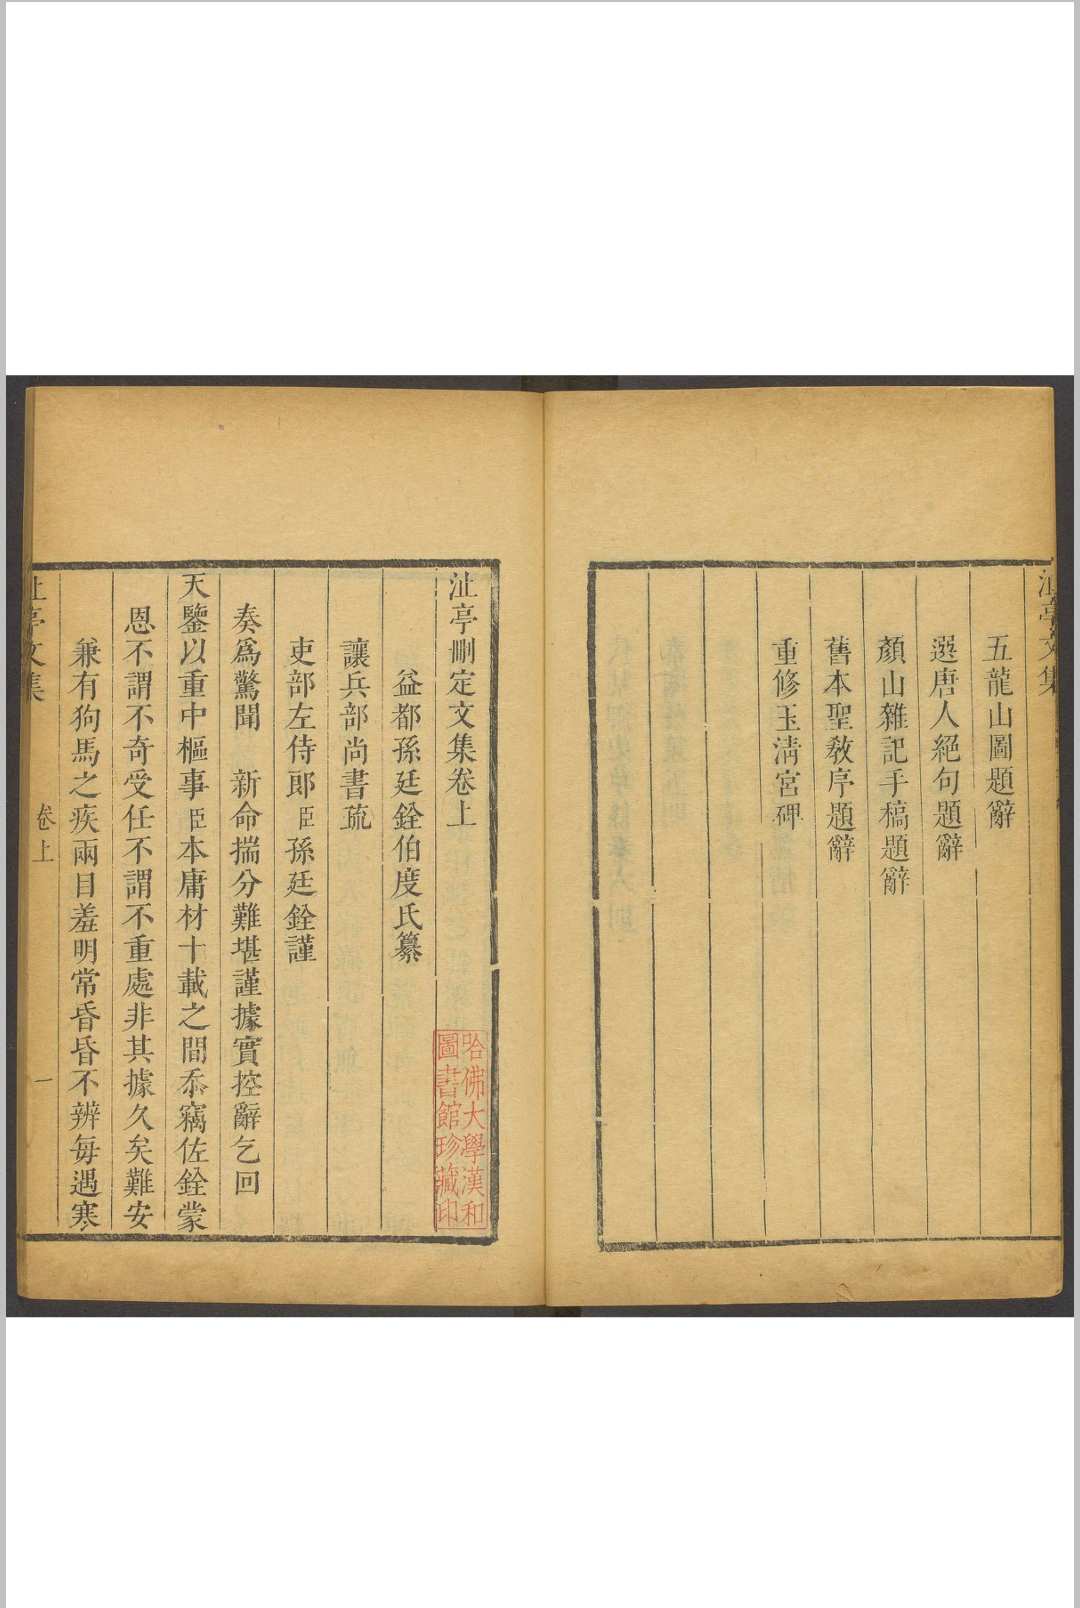 沚亭文集
五龍山圖題辭
選唐人絕句題辭
顏山雜記手槁題辭
舊本聖敎序題辭
重修玉淸宮碑
沚亭刪定文集卷上
益都孫廷銓伯度氏纂
讓兵部尚書疏
吏部左侍郎臣孫廷銓謹
奏爲驚聞 新命揣分難堪謹據實控辭乞回
天鑒以重中樞事臣本庸材十載之間忝竊佐銓蒙
恩不謂不奇受任不謂不重處非其據久矣難安
兼有狗馬之疾兩目羞明常昏昏不辨每遇寒
沚亭文集
卷上
一
哈佛大學漢和
圖書館珍藏印